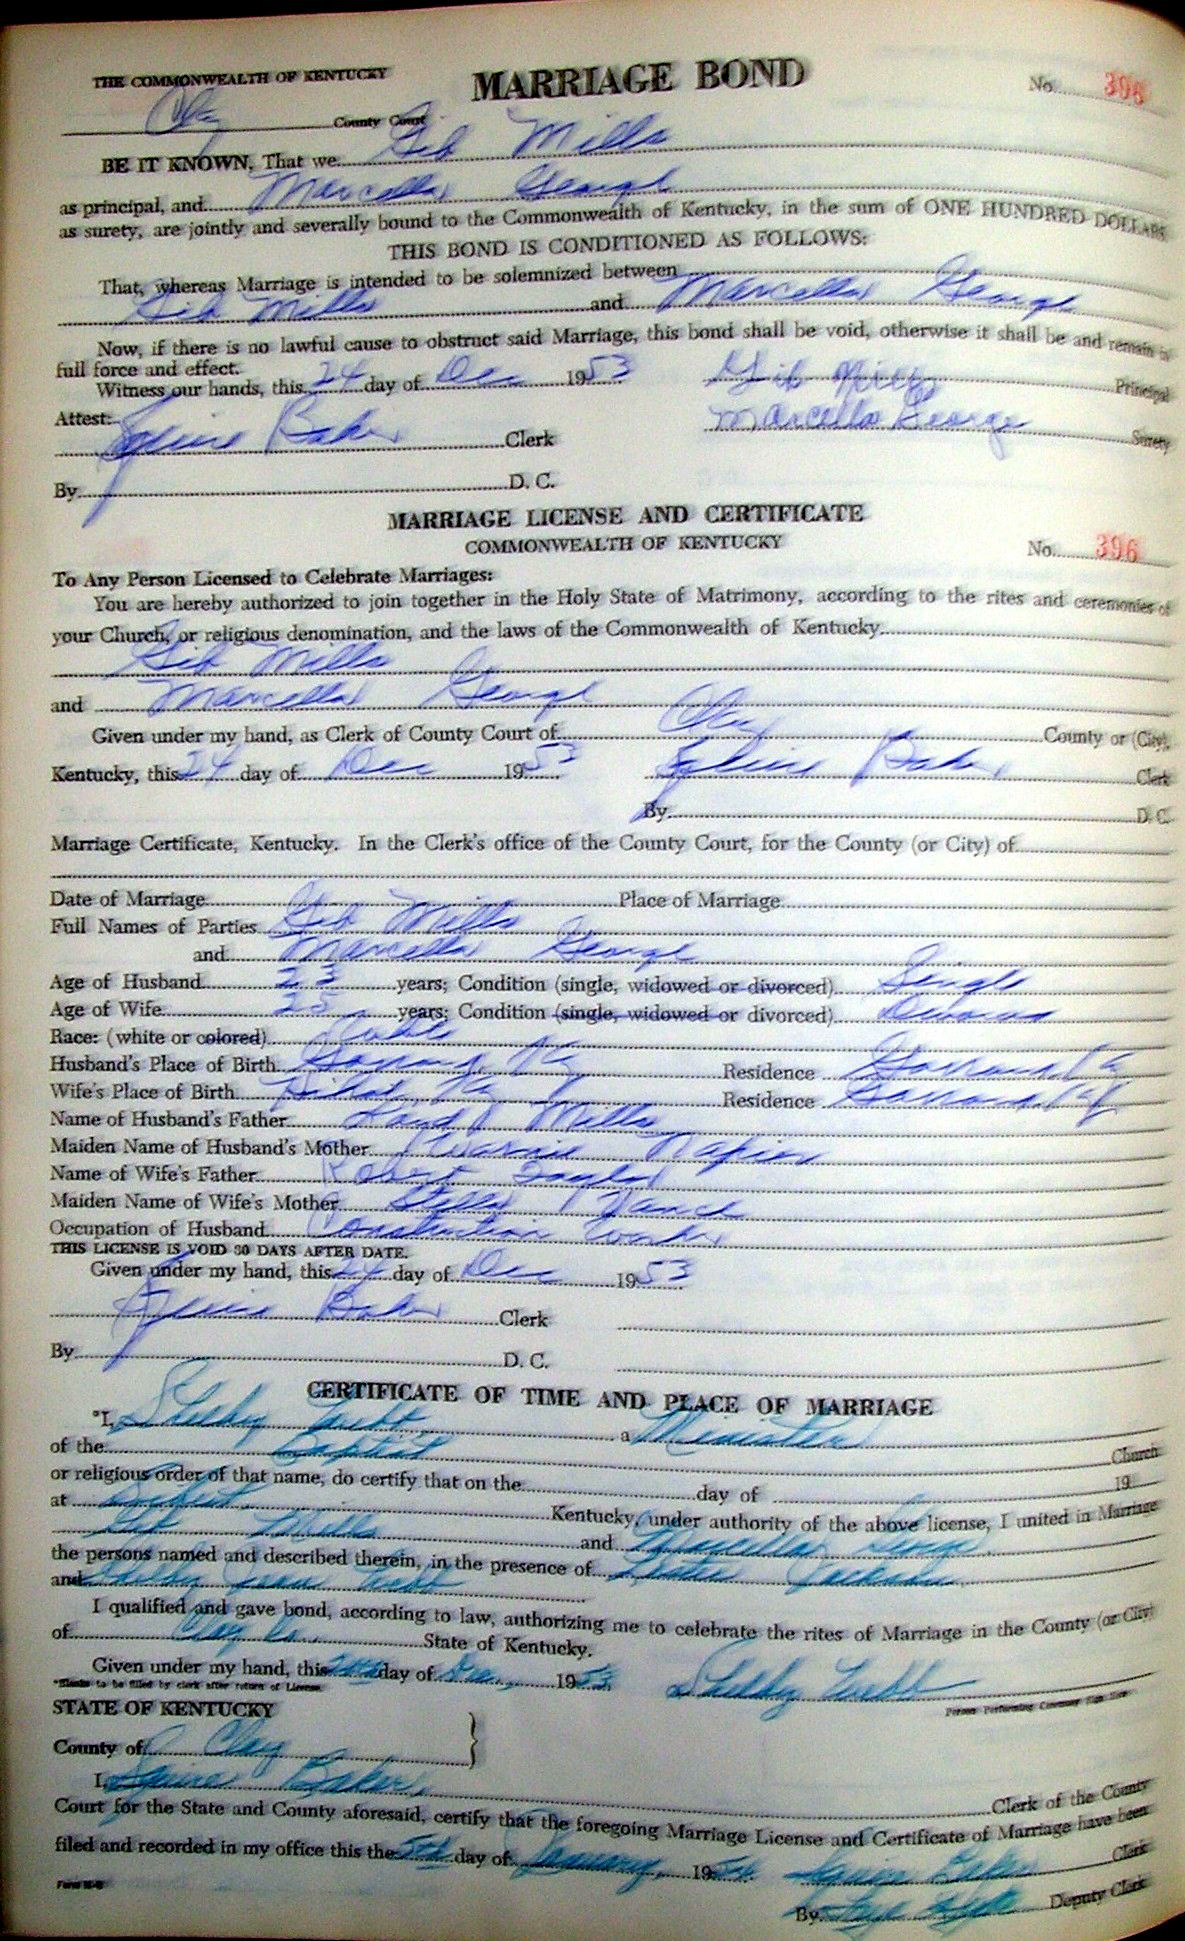 THE COMMONWEALTH OF KENTUCKY
MARRIAGE BOND
No. 396
Clay County Court
BE IT KNOWN, That we Gib Mills
as principal, and Marcella George
as surety, are jointly and severally bound to the Commonwealth of Kentucky, in the sum of ONE HUNDRED DOLLARS
THIS BOND IS CONDITIONED AS FOLLOWS:
That, whereas Marriage is intended to be solemnized between
Gib Mills and Marcella George
Now, if there is no lawful cause to obstruct said Marriage, this bond shall be void, otherwise it shall be and remain in
full force and effect.
Witness our hands, this 24 day of Dec 1953 Gib Mills Principal
Attest: Marcella George Surety
Squire Baker Clerk
By D. C.
MARRIAGE LICENSE AND CERTIFICATE
COMMONWEALTH OF KENTUCKY
No. 396
To Any Person Licensed to Celebrate Marriages:
You are hereby authorized to join together in the Holy State of Matrimony, according to the rites and ceremonies of
your Church, or religious denomination, and the laws of the Commonwealth of Kentucky
Gib Mills
and Marcella George
Given under my hand, as Clerk of County Court of Clay County or (City),
Kentucky, this 24 day of Dec 1953 Squire Baker Clerk
By D. C.
Marriage Certificate, Kentucky. In the Clerk's office of the County Court, for the County (or City) of
Date of Marriage Place of Marriage
Full Names of Parties Gib Mills
and Marcella George
Age of Husband 23 years; Condition (single, widowed or divorced) Single
Age of Wife 25 years; Condition (single, widowed or divorced) Divorced
Race: (white or colored) White
Husband's Place of Birth Ky Residence Ky
Wife's Place of Birth Ky Residence Ky
Name of Husband's Father Mills
Maiden Name of Husband's Mother Napier
Name of Wife's Father Robert Taylor
Maiden Name of Wife's Mother Stella
Occupation of Husband Construction Worker
THIS LICENSE IS VOID 30 DAYS AFTER DATE.
Given under my hand, this 24 day of Dec 1953
Squire Baker Clerk
By D. C.
CERTIFICATE OF TIME AND PLACE OF MARRIAGE
*I, Shelby Webb, a Minister
of the Baptist Church
or religious order of that name, do certify that on the day of 19
at Kentucky, under authority of the above license, I united in Marriage
Gib Mills and Marcella George
the persons named and described therein, in the presence of Jackson
and Shelby Jean Webb
I qualified and gave bond, according to law, authorizing me to celebrate the rites of Marriage in the County (or City)
of Clay Co. State of Kentucky.
Given under my hand, this 24th day of Dec., 1953. Shelby Webb
*Blanks to be filled by clerk after return of License Person Performing Ceremony Sign Here
STATE OF KENTUCKY
County of Clay
I, Squire Baker, Clerk of the County
Court for the State and County aforesaid, certify that the foregoing Marriage License and Certificate of Marriage have been
filed and recorded in my office this the 5th day of January, 1954 Squire Baker Clerk
By Faye Deputy Clerk